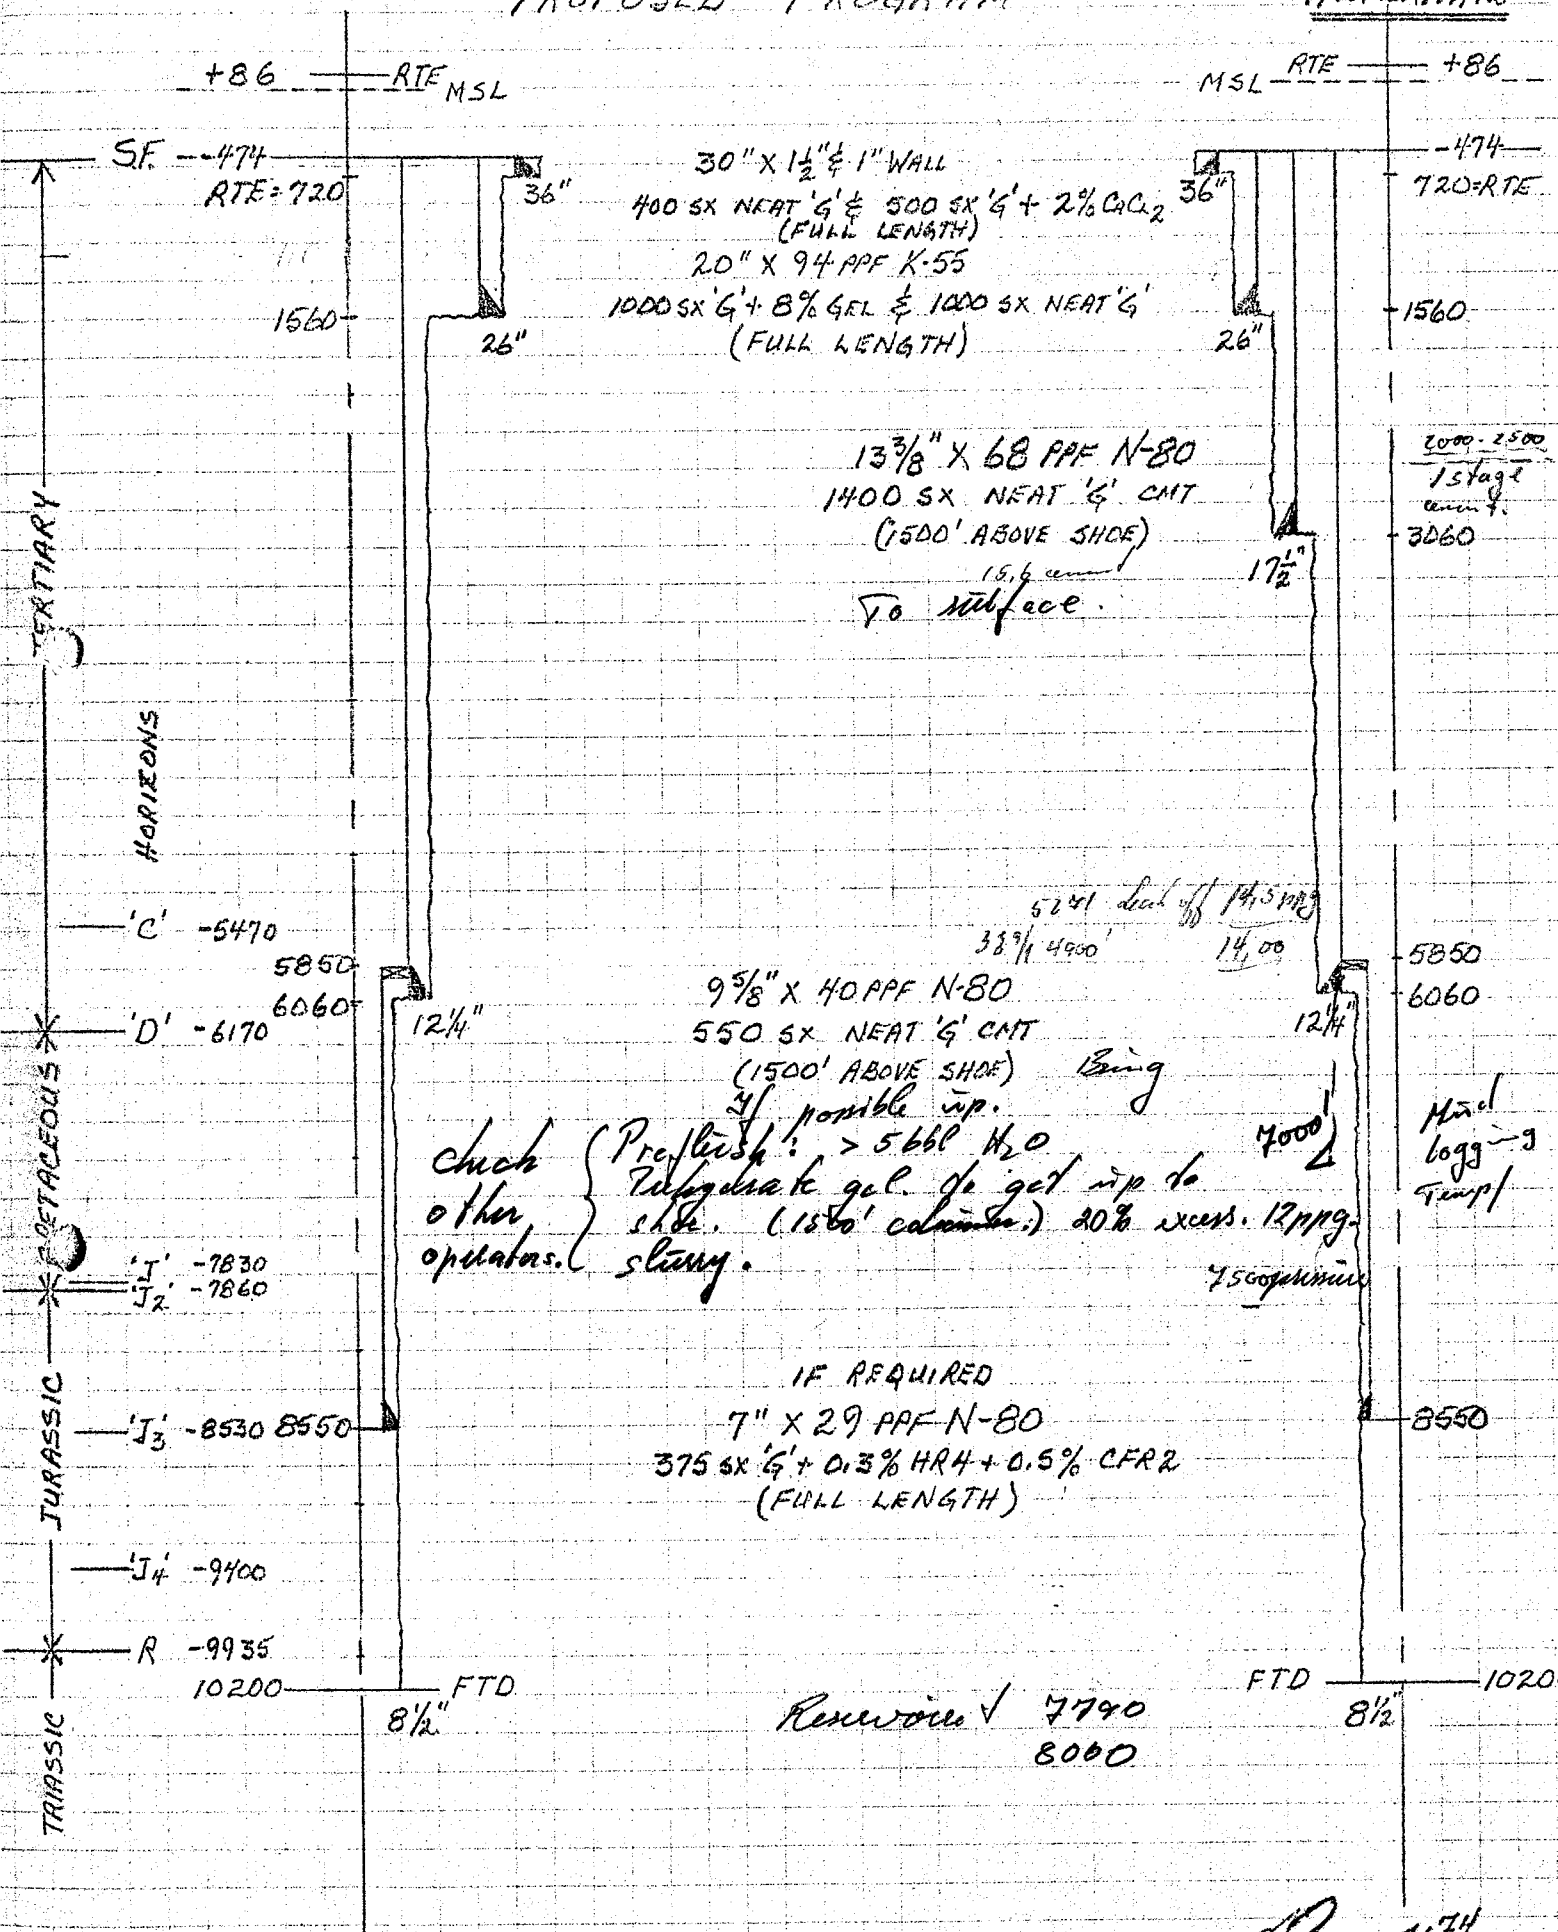 PROPOSED PROGRAM
+86 RTE MSL
MSL RTE +86
S.F. -474
RTE=720
36"
30" X 1½" & 1" WALL
400 SX NEAT 'G' & 500 SX 'G' + 2% CaCl2
(FULL LENGTH)
36"
-474
720=RTE
20" X 94 PPF K-55
1000 SX 'G' + 8% GEL & 1000 SX NEAT 'G'
(FULL LENGTH)
1560
26"
26"
1560
13⅜" X 68 PPF N-80
1400 SX NEAT 'G' CMT
(1500' ABOVE SHOE)
15,6
To surface.
17½"
2000-2500
1 stage
3060
TERTIARY
HORIZONS
'C' -5470
5850
6060
'D' -6170
12¼"
leak off 14,5 ppg
4900' 14,00
9⅝" X 40 PPF N-80
550 SX NEAT 'G' CMT
(1500' ABOVE SHOE) Bring
If possible up.
5850
6060
12¼"
check
other
operators.
Preflush: > 5 bbl H2O
gel. to get up to
shoe. (1500' column.) 20% excess. 12 ppg
slurry.
7000'
Mud
logging
Temp
CRETACEOUS
'J' -7830
'J2' -7860
IF REQUIRED
7" X 29 PPF N-80
375 SX 'G' + 0.3% HR4 + 0.5% CFR2
(FULL LENGTH)
JURASSIC
'J3' -8530 8550
8550
'J4' -9400
R -9935
10200 FTD
8½"
FTD 1020
8½"
Reservoir 7790
8060
TRIASSIC